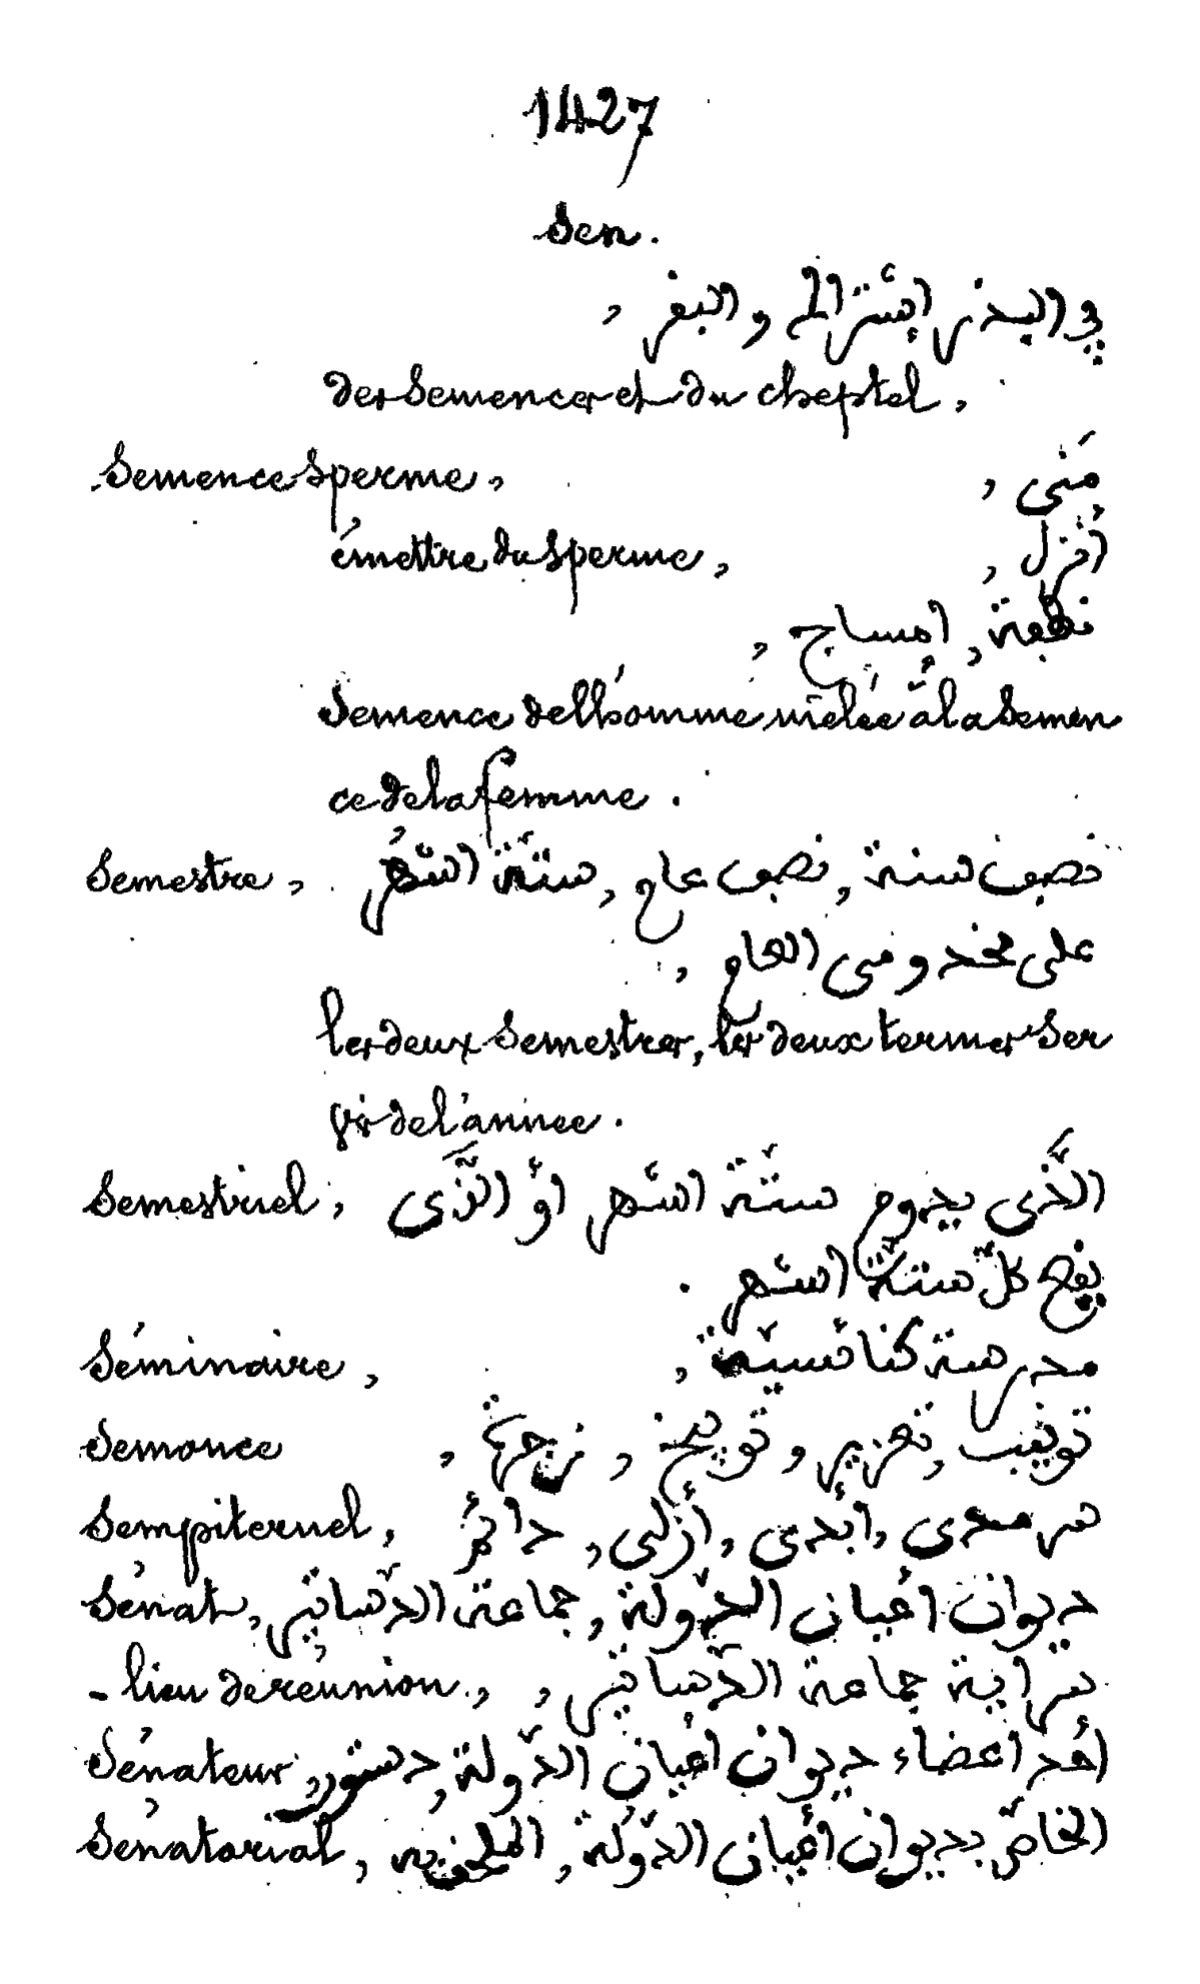 1427
Sen.
في البذر اشتراك والبقر ,
des semences et du cheptel,
Semence sperme, مَنى ,
émettre du sperme, أنزل ,
نطفة, امساج ,
Semence de l'homme mêlée à la semen
ce de la femme.
Semestre, نصف سنة, نصف عام, ستّة اشهُر
على مخدومى العام ,
les deux semestres, les deux termes ser
vis de l'année.
Semestriel, الَّذى يدوم ستّة اشهر اوْ الَّذى
يقع كلّ ستّة اشهر .
Séminaire, مدرسة كنائسيّة ,
Semonce تونيب, تعزير, توبيخ, زجرة ,
Sempiternel, سرمدى, أبدى, أزلى, دائم
Sénat, ديوان أعيان الدّولة, جماعة الدّساتير,
- lieu de réunion, سراية جماعة الدّساتير ,
Sénateur, أحد اعضاء ديوان أعيان الدّولة, دستور,
Sénatorial, الخاصّ بديوان أعيان الدّولة, الملحق به,